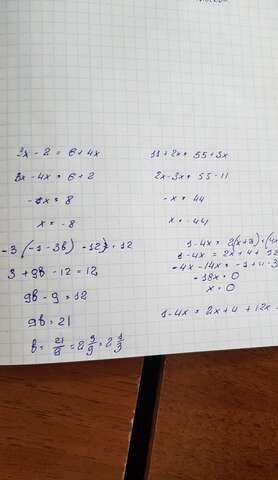 3x - 2 = 6 + 4x
3x - 4x = 6 + 2
-x = 8
x = -8
-3(-1-3b) -12 = 12
3 + 9b - 12 = 12
9b - 9 = 12
9b = 21
b = 21/9 = 2 3/9 = 2 1/3
11 + 2x = 55 + 3x
2x - 3x = 55 - 11
-x = 44
x = -44
1-4x = 2(x+2)+(4x
1-4x = 2x + 4 + 12
-4x - 14x = -1 + 4 - 3
-18x = 0
x = 0
1-4x = 2x + 4 + 12x -